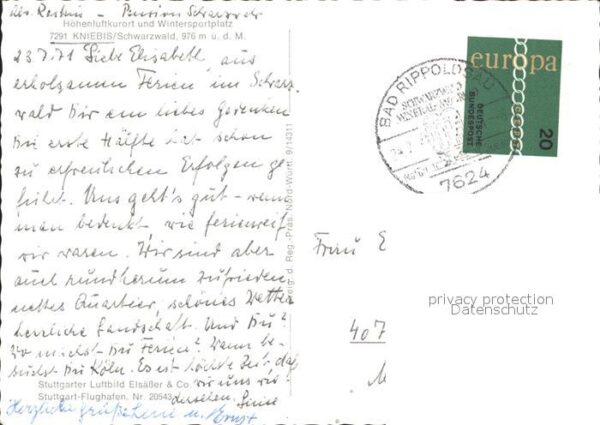 Abs. Pension Schwarzwald
Höhenluftkurort und Wintersportplatz
7291 KNIEBIS/Schwarzwald, 976 m ü. d. M.
23.7.71 Liebe Elisabeth, aus
erholsamen Ferien im Schwarz
wald Dir ein liebes Gedenken
Die erste Hälfte hat schon
zu erfreulichen Erfolgen ge
führt. Uns geht's gut – wenn
man bedenkt, wie ferienreif
wir waren. Wir sind aber
auch rundherum zufrieden
nettes Quartier, schönes Wetter
herrliche Landschaft. Und Du?
Wo machst Du Ferien? Wann be-
suchst Du Köln. Es ist höchste Zeit, daß
wir uns wie-
Stuttgarter Luftbild Elsäßer & Co.
Stuttgart-Flughafen. Nr. 20543
dersehen.
Herzliche Grüße u. Ernst
Freig. d. Reg.-Präs. Nord-Württ. 9/14311
BAD RIPPOLDSAU
SCHWARZWALD
MINERAL
7624
europa
DEUTSCHE
BUNDESPOST
20
Frau E
407
M
privacy protection
Datenschutz